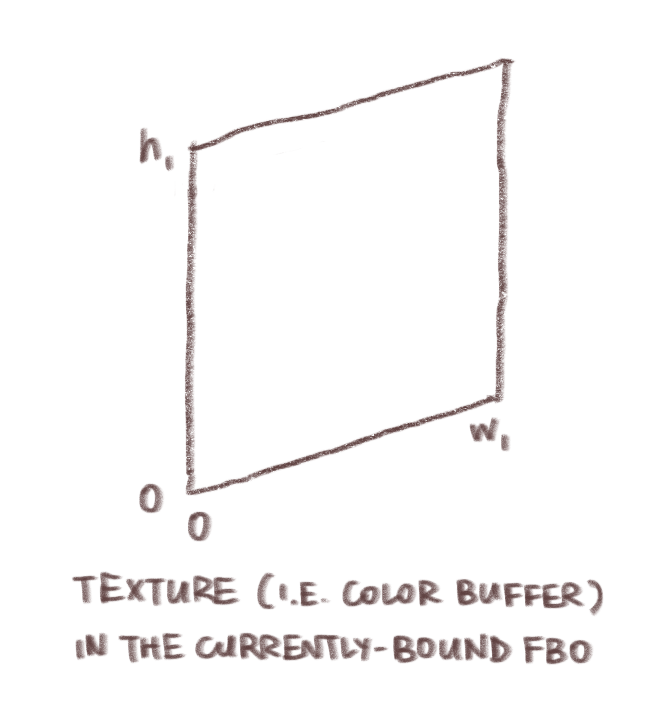 h₁
w₁
0
0
TEXTURE (I.E. COLOR BUFFER)
IN THE CURRENTLY-BOUND FBO